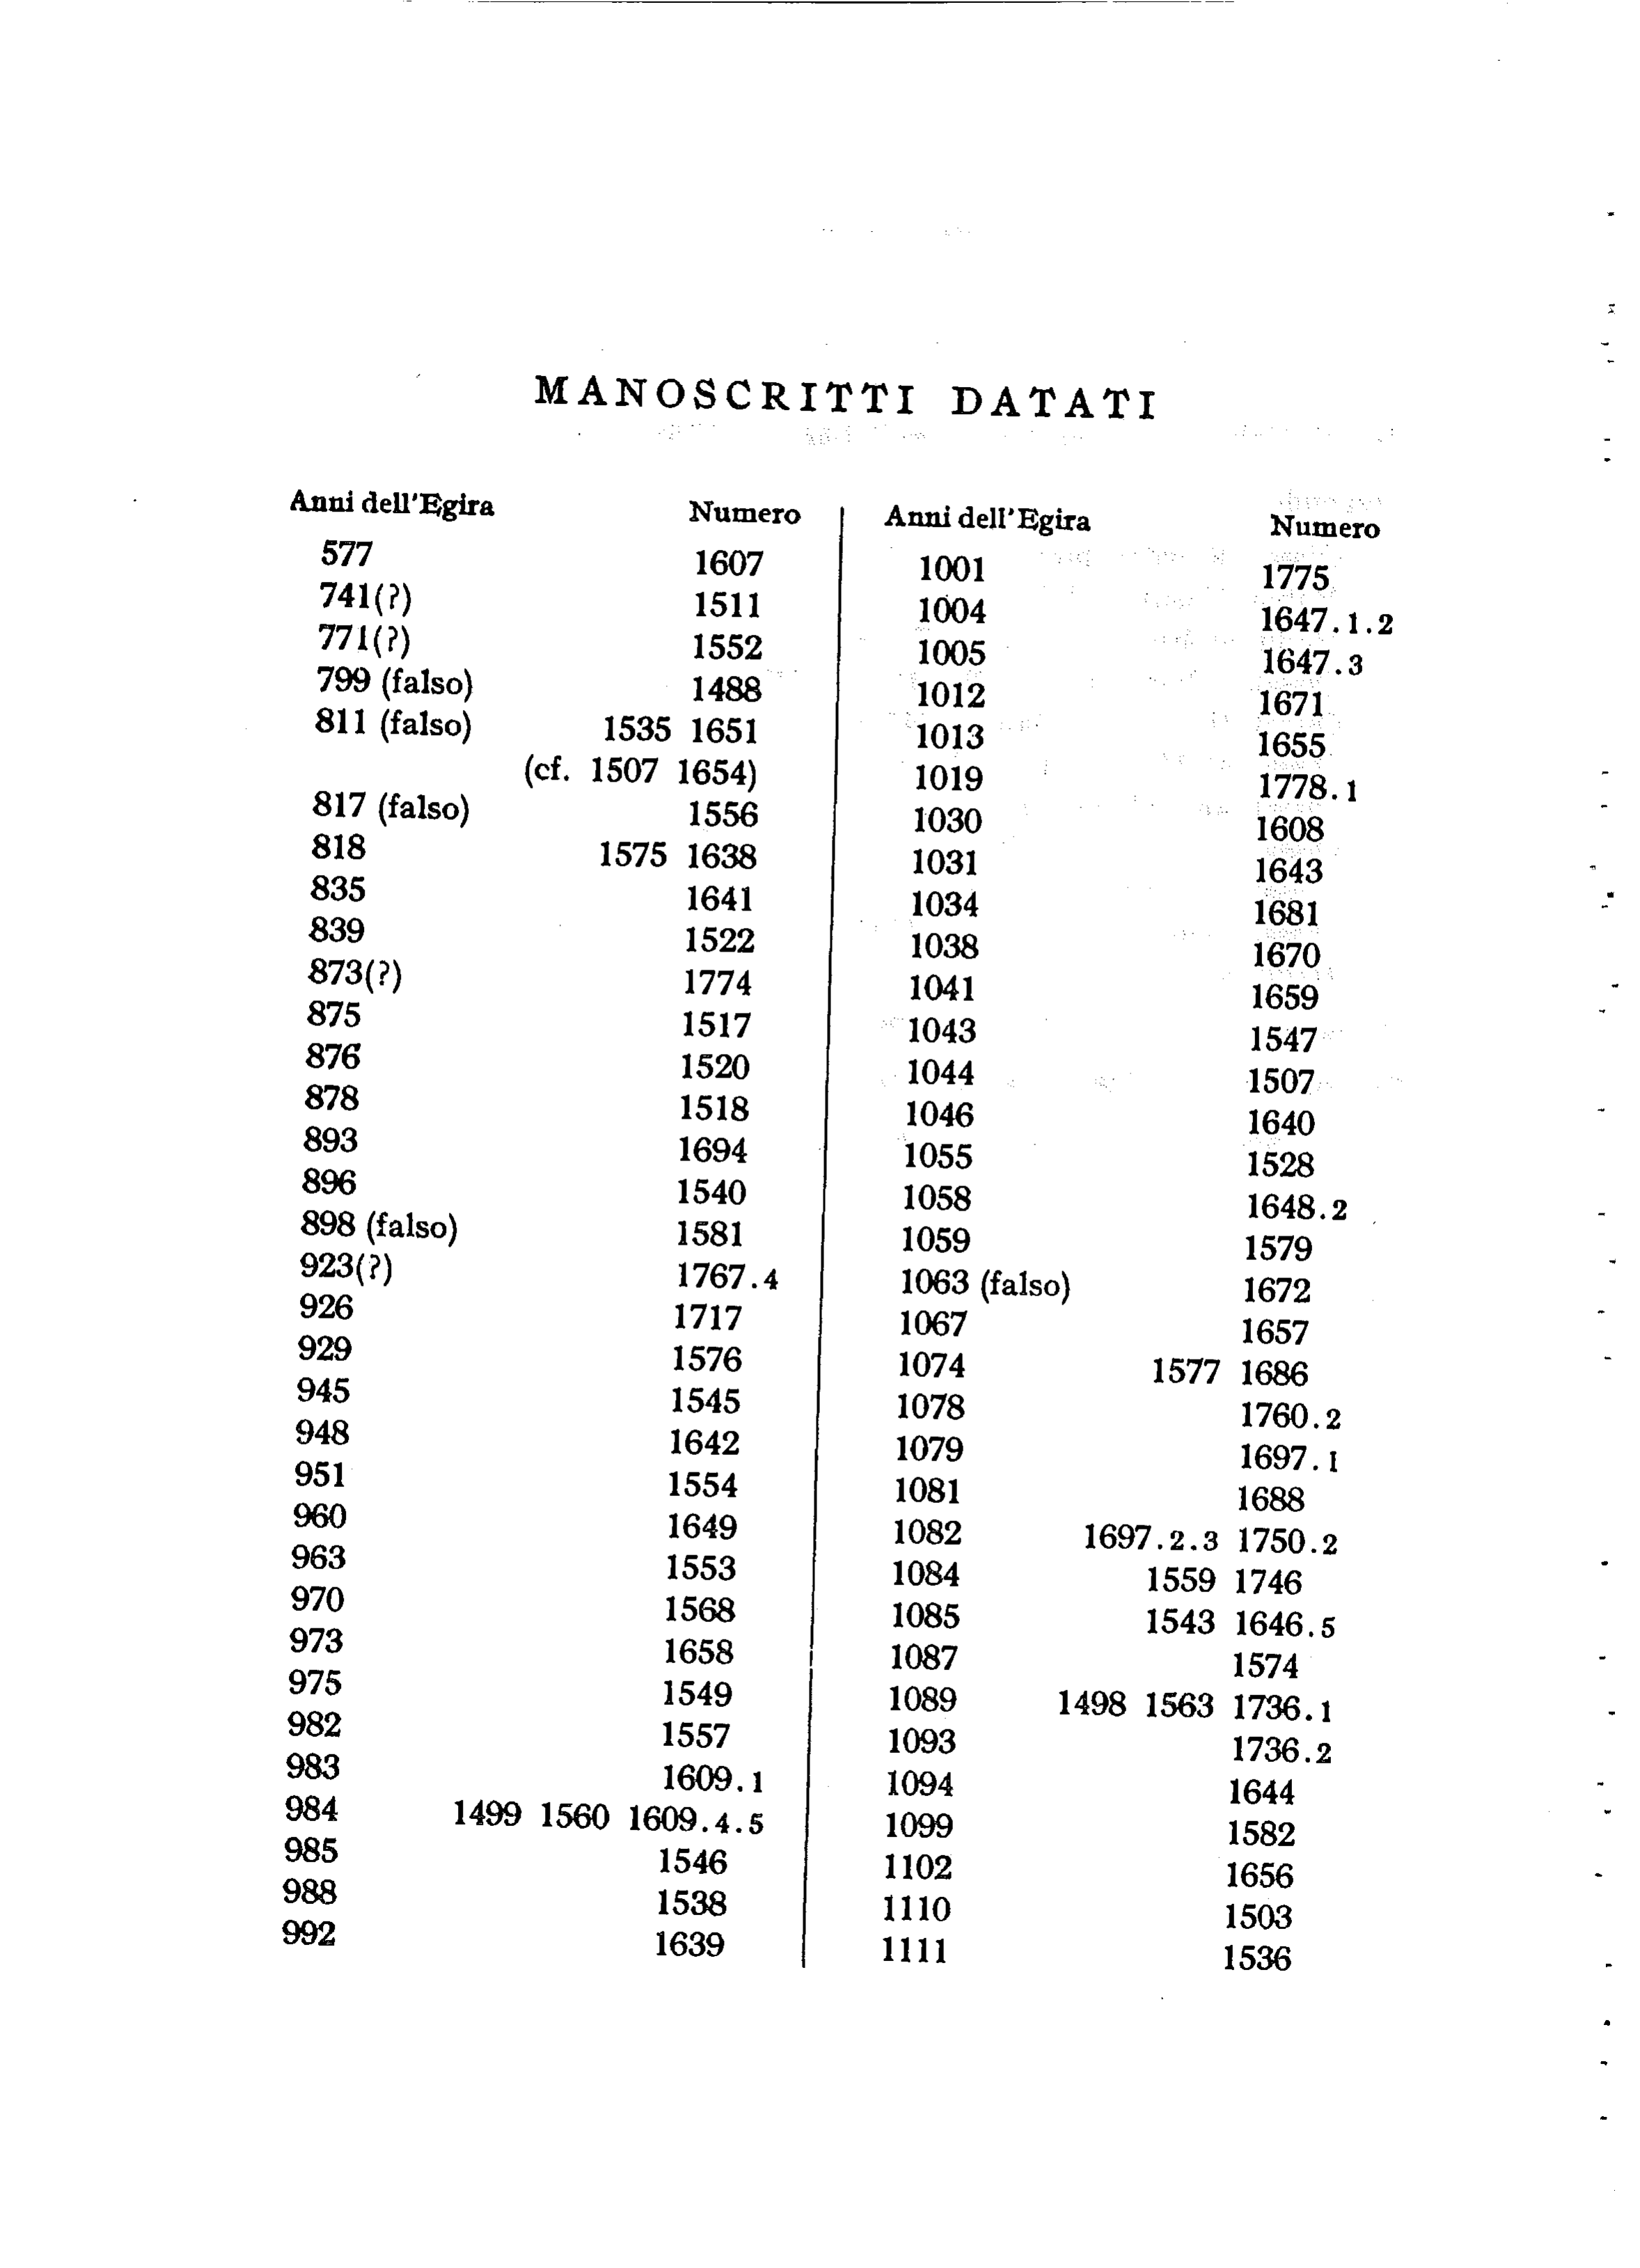 MANOSCRITTI DATATI
Anni dell'Egira Numero
577 1607
741(?) 1511
771(?) 1552
799 (falso) 1488
811 (falso) 1535 1651
(cf. 1507 1654)
817 (falso) 1556
818 1575 1638
835 1641
839 1522
873(?) 1774
875 1517
876 1520
878 1518
893 1694
896 1540
898 (falso) 1581
923(?) 1767.4
926 1717
929 1576
945 1545
948 1642
951 1554
960 1649
963 1553
970 1568
973 1658
975 1549
982 1557
983 1609.1
984 1499 1560 1609.4.5
985 1546
988 1538
992 1639
Anni dell'Egira Numero
1001 1775
1004 1647.1.2
1005 1647.3
1012 1671
1013 1655
1019 1778.1
1030 1608
1031 1643
1034 1681
1038 1670
1041 1659
1043 1547
1044 1507
1046 1640
1055 1528
1058 1648.2
1059 1579
1063 (falso) 1672
1067 1657
1074 1577 1686
1078 1760.2
1079 1697.1
1081 1688
1082 1697.2.3 1750.2
1084 1559 1746
1085 1543 1646.5
1087 1574
1089 1498 1563 1736.1
1093 1736.2
1094 1644
1099 1582
1102 1656
1110 1503
1111 1536